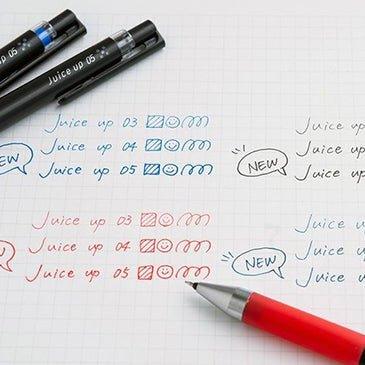 Juice up 05
Juice up 05
Juice up 03
Juice up 04
Juice up 05
Juice up
Juice up
Juice up
NEW
Juice up 03
Juice up 04
Juice up 05
Juice up
Juice up
Juice up
NEW